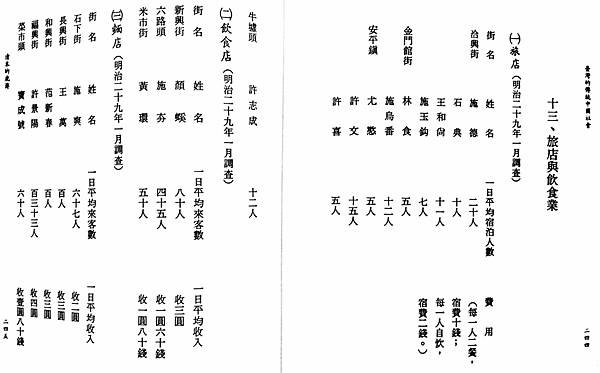 臺灣的傳統中國社會
十三、旅店與飲食業
㈠旅店（明治二十九年一月調查）
街名 姓名 一日平均宿泊人數 費用
洽興街 施德 二十人 （每一人二餐，
石典 十人 宿費十錢；
王和尚 十一人 每一人自炊，
施玉鈎 七人 宿費二錢。）
施烏番 十二人
金門館街 林食 五人
安平鎮 尤憨 五人
許文 十五人
許喜 五人
二四四
牛墟頭 許志成 十二人
㈡飲食店（明治二十九年一月調查）
街名 姓名 一日平均來客數 一日平均收入
新興街 顏螇 八十人 收三圓
六路頭 施夯 四十五人 收一圓六十錢
米市街 黃環 五十人 收一圓八十錢
㈢麵店（明治二十九年一月調查）
街名 姓名 一日平均來客數 一日平均收入
石下街 施爽 六十七人 收二圓
長興街 王萬 百人 收三圓
和興街 范新春 百人 收三圓
福興街 許景陽 百三十三人 收四圓
菜市頭 寶成號 六十人 收壹圓八十錢
二四五